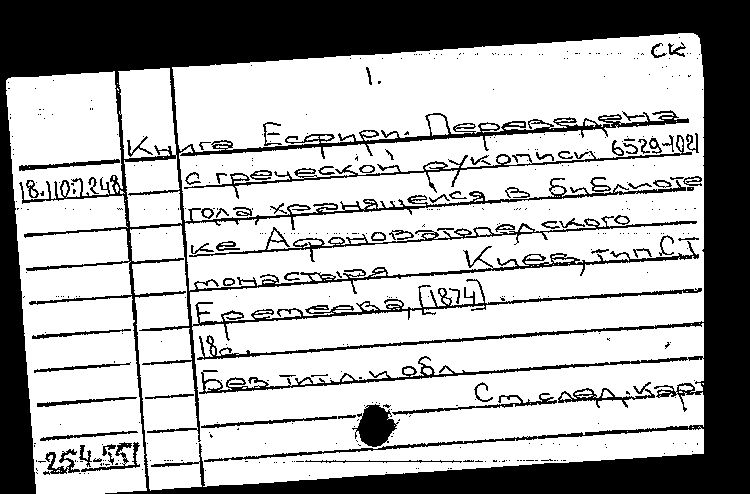 СК
1.
Книга Есфирь. Переведена
с греческой рукописи 6529-1021
18.110.7.248
года, хранящейся в библиоте
ке Афоноватопедского
монастыря. Киев, тип. С.Т.
Еремеева, [1874].
18с.
Без тит.л. и обл.
См. след. карт
254-551